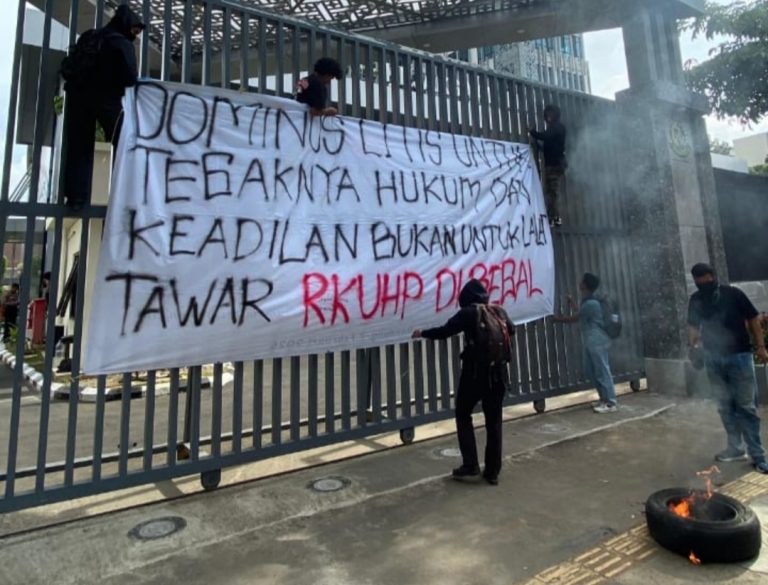 DOMINUS LITIS UNTUK
TEGAKNYA HUKUM DAN
KEADILAN BUKAN UNTUK
TAWAR RKUHP DI BEGAL